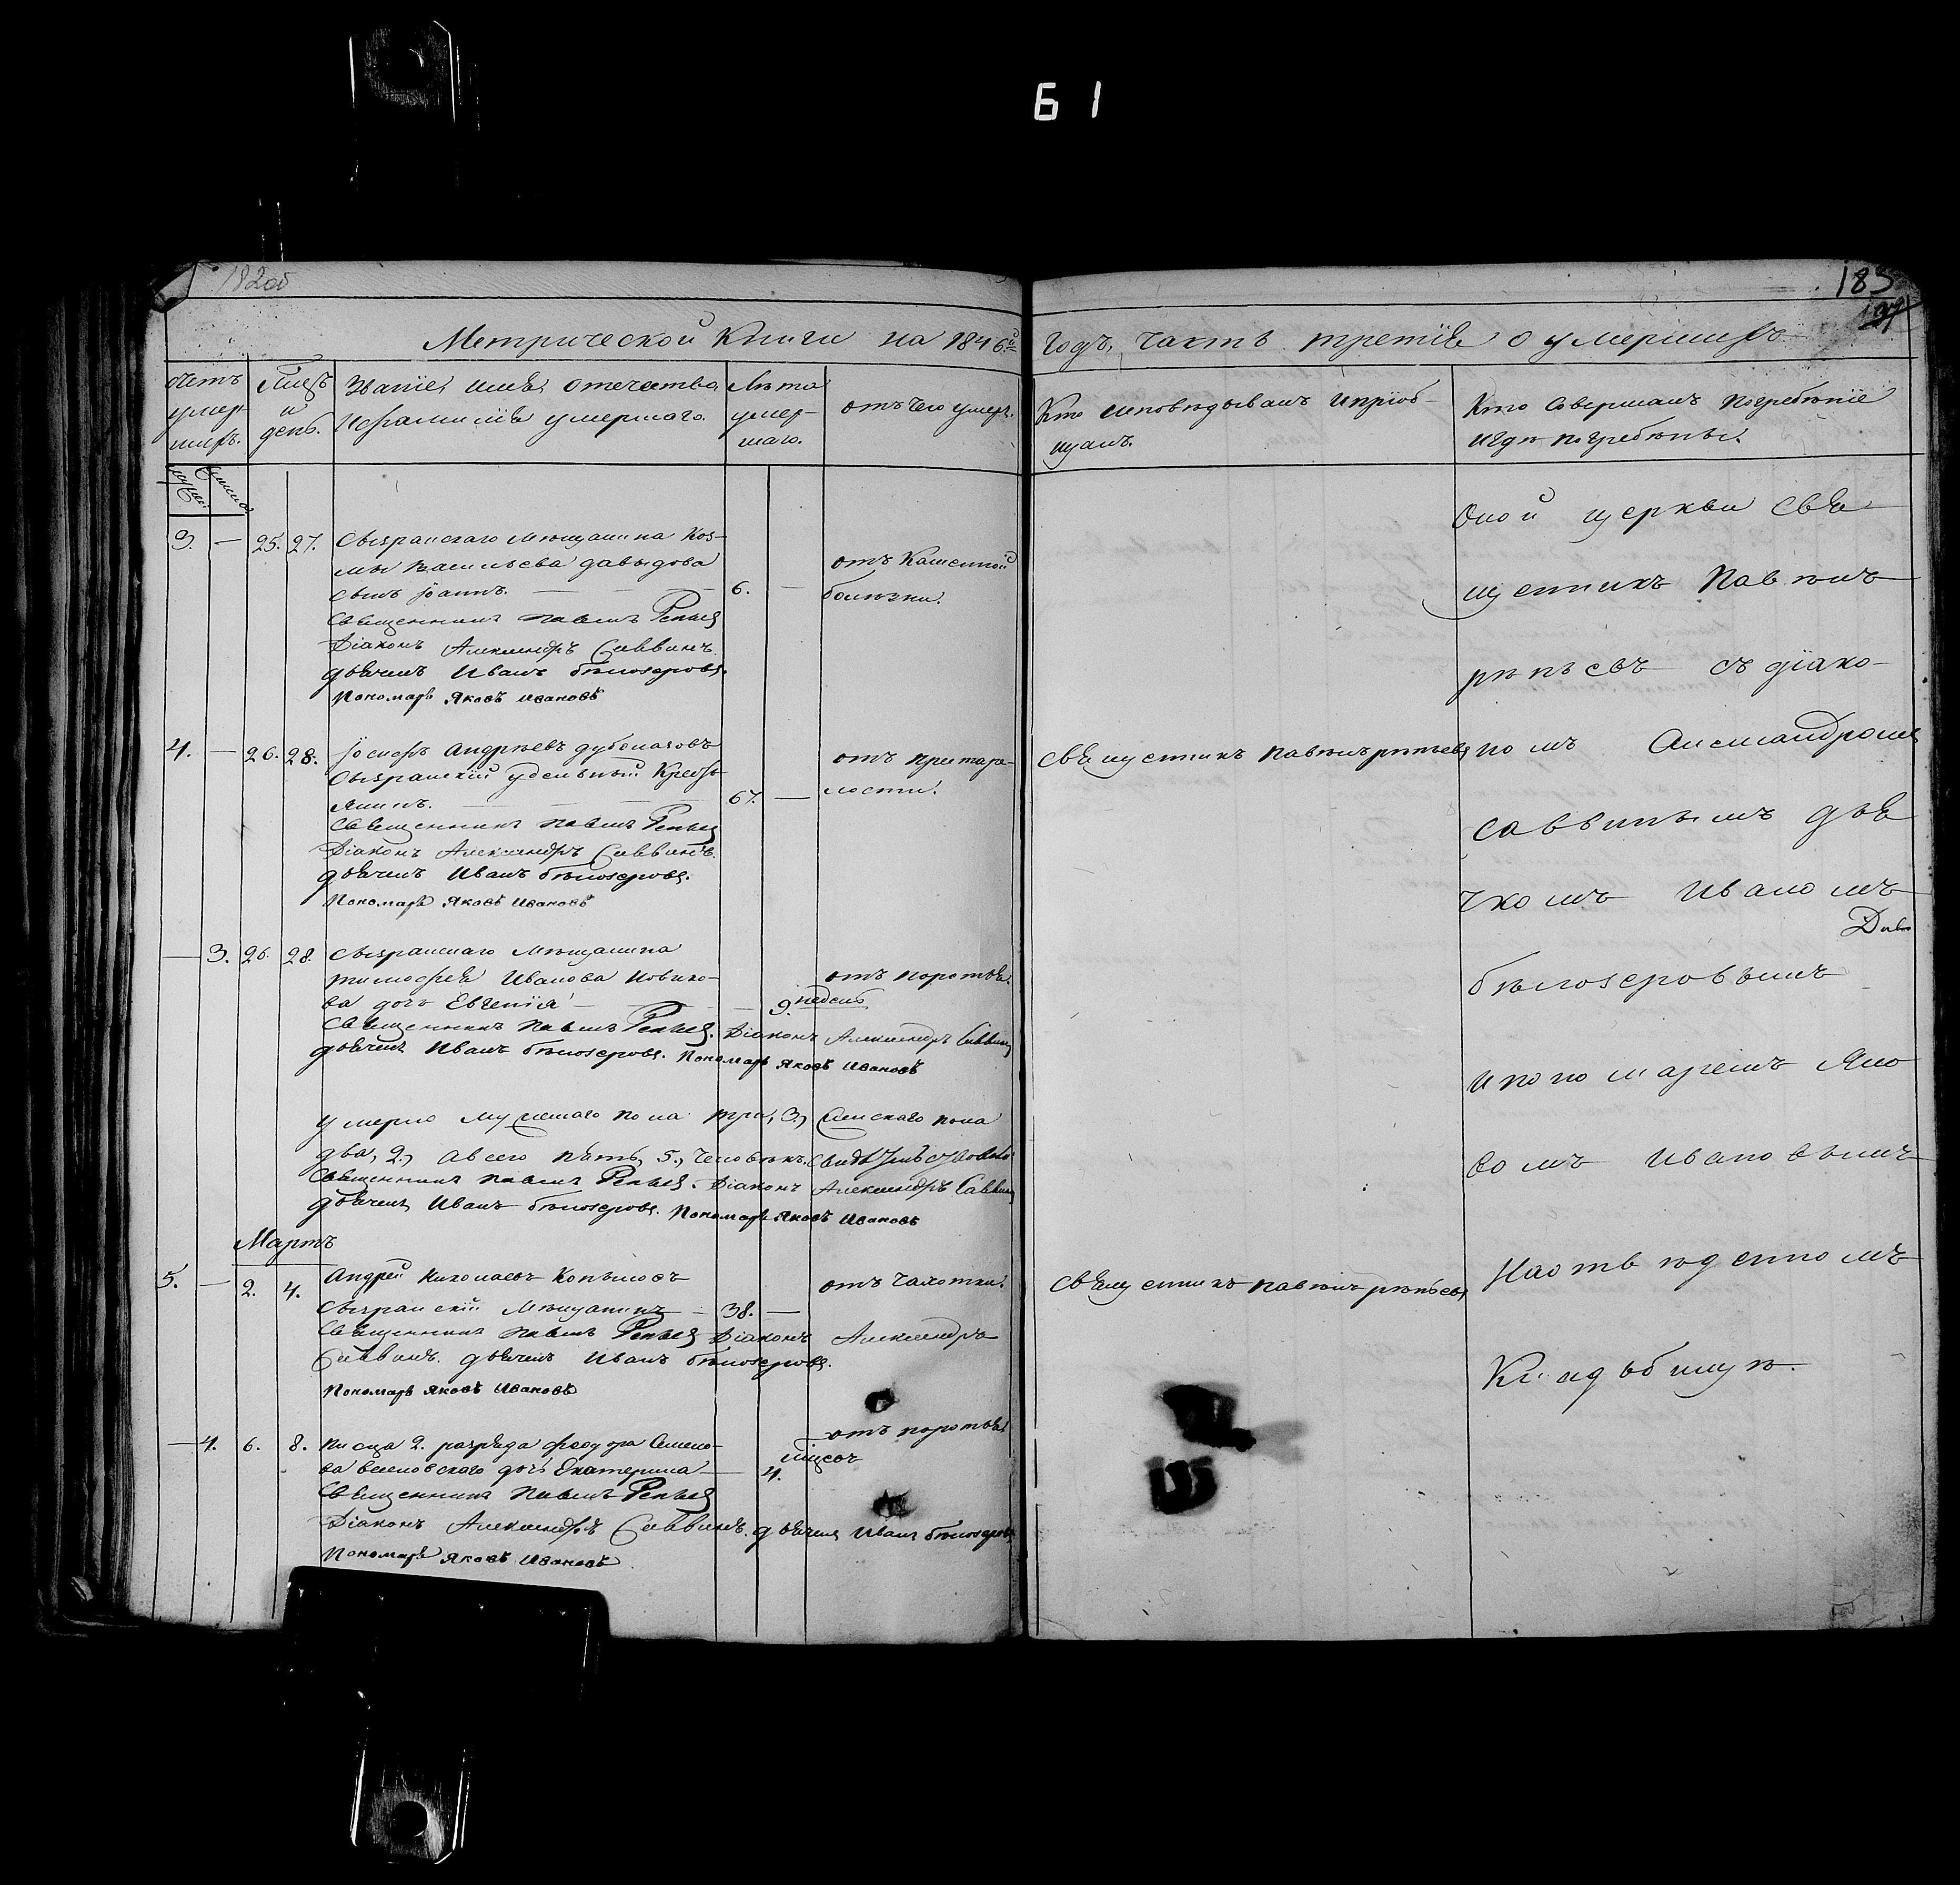 Б 1
182об
183
197
Метрической Книги на 1846й
годъ, часть третія о умершихъ.
счетъ умер-
шихъ.
Мцъ
и
день.
Званіе, имя, отечество,
и фамилія умершаго.
Лѣта
умер-
шаго.
отъ чего умеръ.
Кто исповѣдывалъ и пріоб-
щалъ.
Кто совершалъ погребеніе
и гдѣ погребены.
3. — 25. 27. Сызранскаго мѣщанина Коз-
мы Васильева Давыдова
сынъ Іоаннъ. — 6. —
отъ Кашельной
болѣзни.
Священникъ Павелъ Репьев
Діаконъ Александръ Саввинъ.
дьячекъ Иванъ бѣлозеровъ.
Пономарь Яковъ Ивановъ
4. — 26. 28. Іосифъ Андреевъ
Сызранскій удельный Кресть-
янинъ. 67. —
отъ престаре-
лости.
Священникъ Павелъ Репьев
Діаконъ Александръ Саввинъ.
дьячекъ Иванъ бѣлозеровъ.
Пономарь Яковъ Ивановъ
— 3. 26. 28. Сызранскаго мѣщанина
тимофея Иванова Новико-
ва дочь Евгенія — 9. недель
отъ поротья.
Священникъ Павелъ Репьев. Діаконъ Александръ Саввинъ
дьячекъ Иванъ бѣлозеровъ. Пономарь Яковъ Ивановъ
умерло мужескаго пола три, 3., женскаго пола
два, 2., а всего пять, 5., человѣкъ.
Священникъ Павелъ Репьев. Діаконъ Александръ Саввинъ
дьячекъ Иванъ бѣлозеровъ. Пономарь Яковъ Ивановъ
Мартъ
5. — 2. 4. Андрей Николаевъ Копыловъ
Сызранскій Мѣщанинъ — 38. —
отъ чахотки.
Священникъ Павелъ Репьев Діаконъ Александръ
Саввинъ. дьячекъ Иванъ бѣлозеровъ.
Пономарь Яковъ Ивановъ
— 4. 6. 8. писца 2. разряда Феодора Семено-
ва дочь Екатерина — 4. мѣсяч
отъ поротья
Священникъ Павелъ Репьев
Діаконъ Александръ Саввинъ. дьячекъ Иванъ бѣлозеровъ
Пономарь Яковъ Ивановъ
священникъ павелъ репьевъ
священникъ павелъ репьевъ
Оной церкви свя-
щенникъ Павелъ
репьевъ съ діако-
номъ Александромъ
саввинымъ дья
чкомъ Иваномъ
бѣлозеровымъ
и пономаремъ Яко
вомъ Ивановымъ
На отведенномъ
Кладбищѣ.